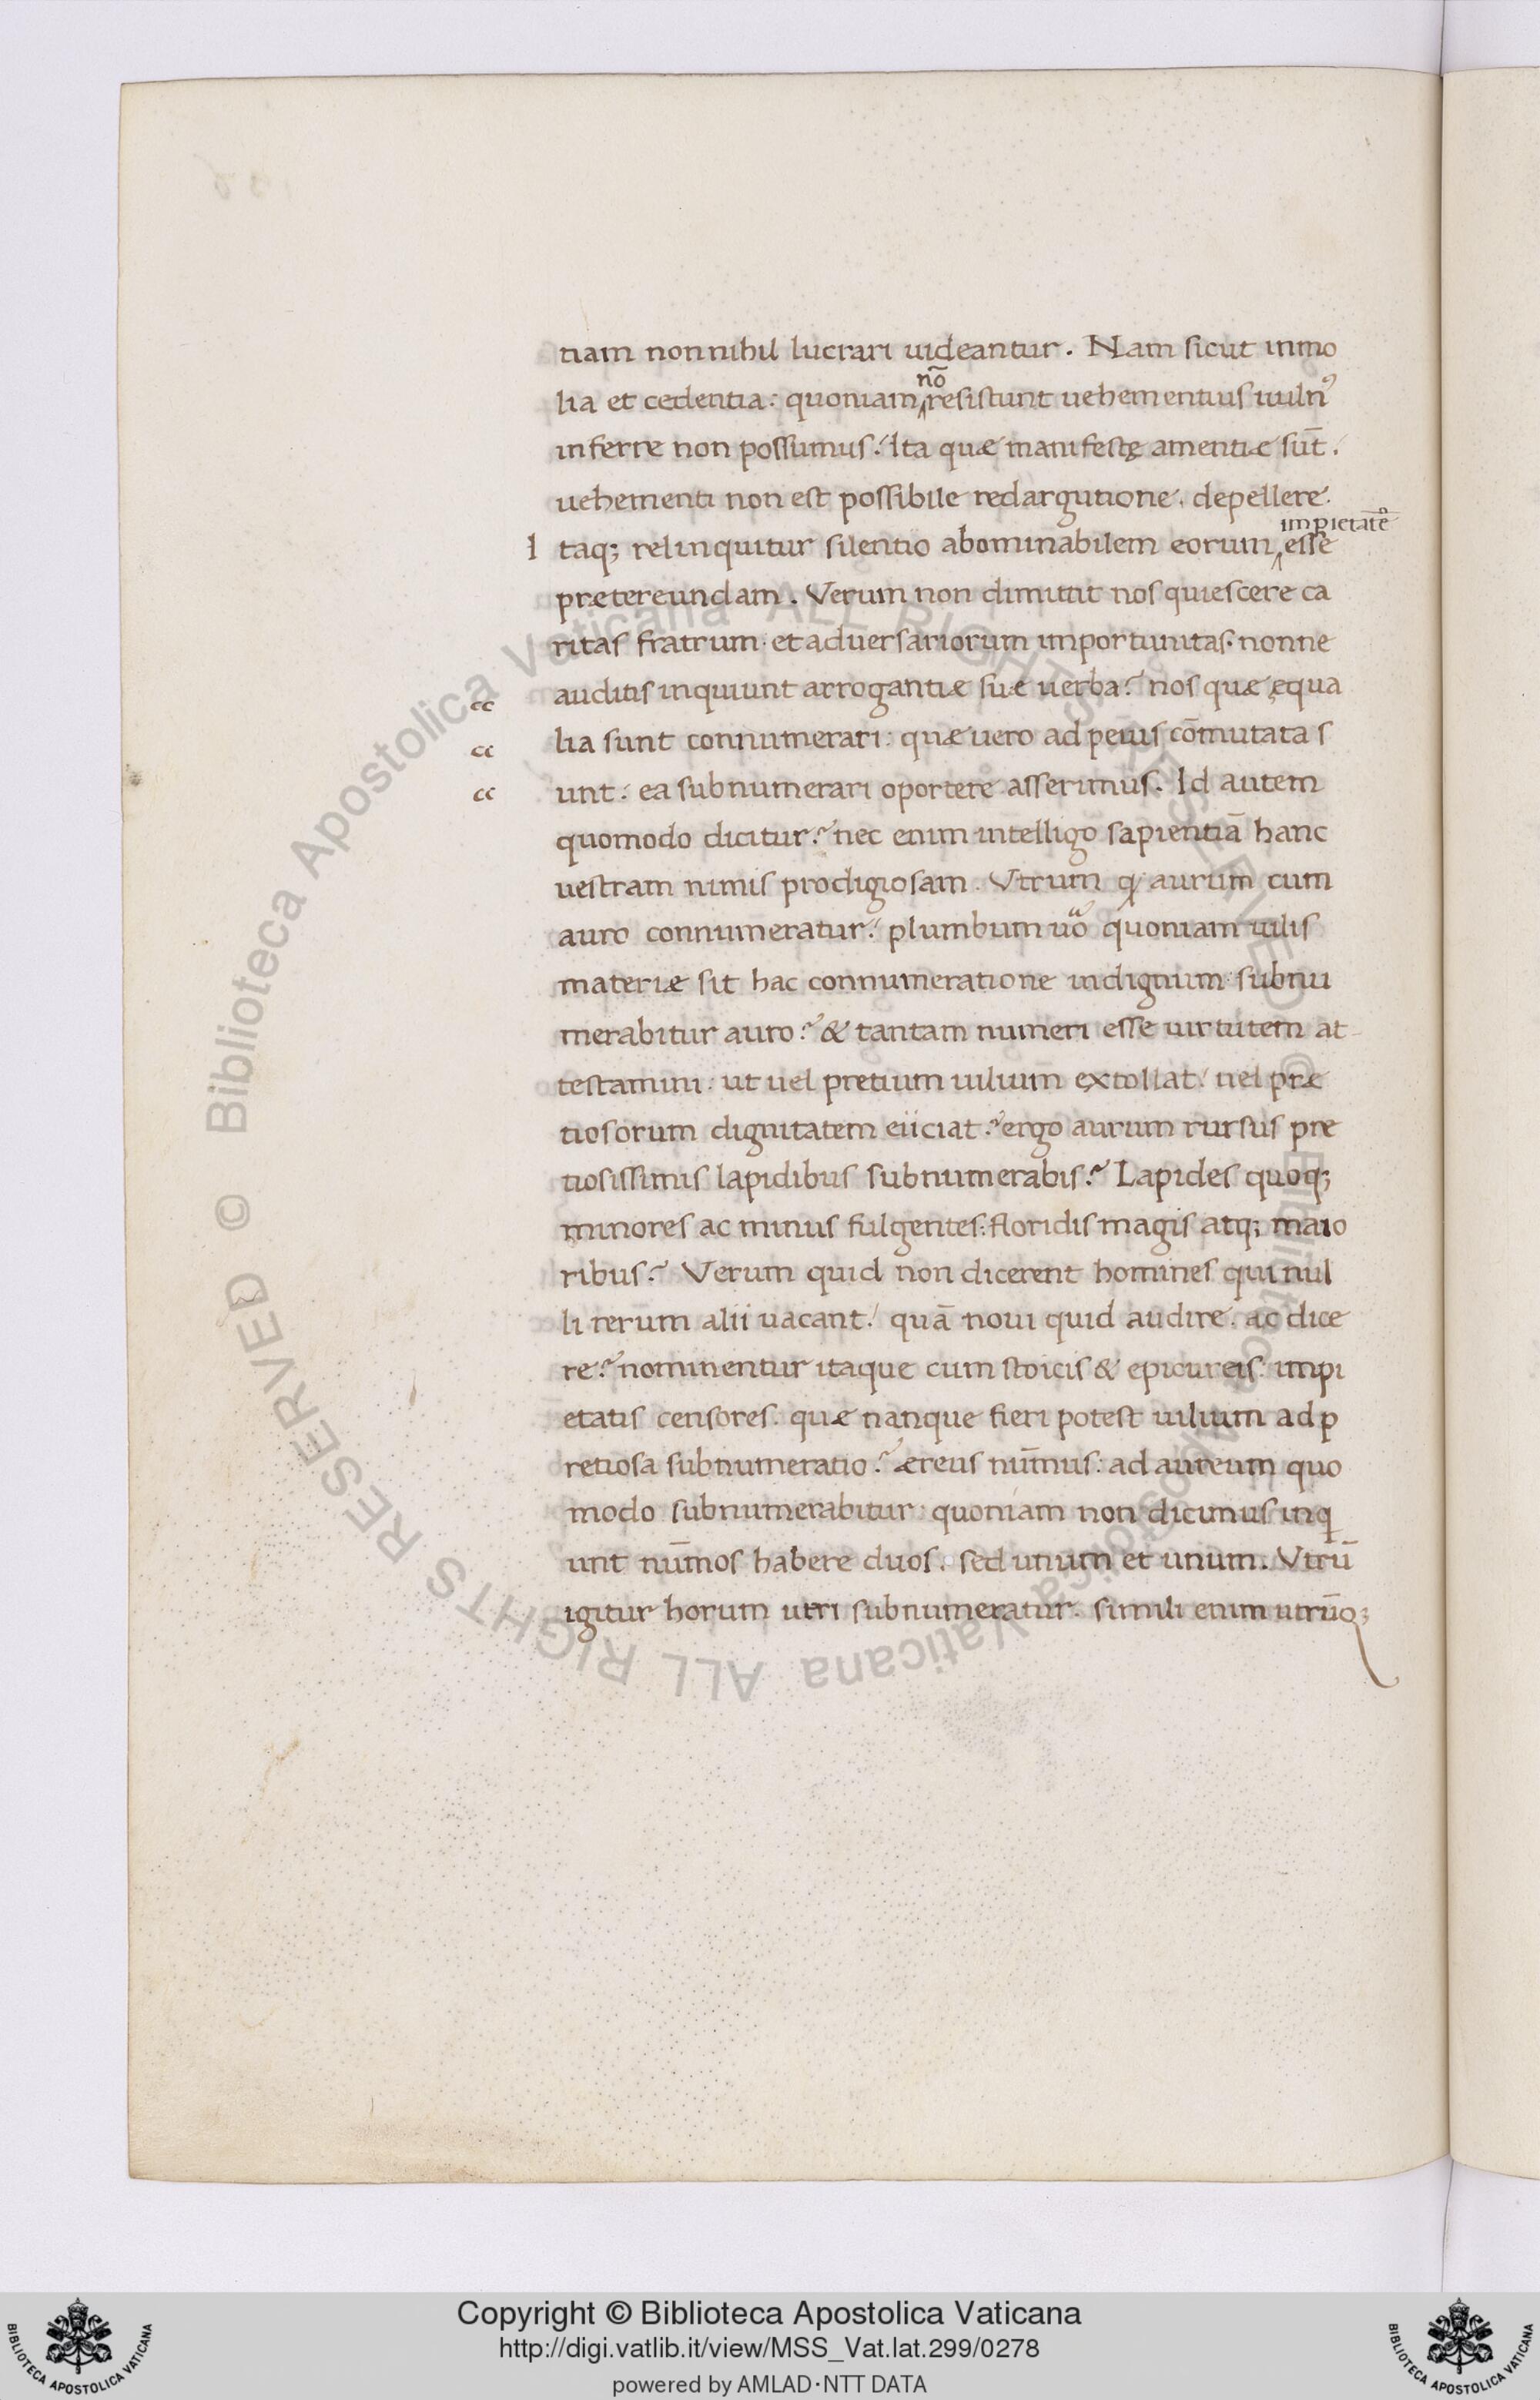 tiam non nihil lucrari uideantur. Nam sicut in mo
lia et cedentia: quoniam nō resistunt uehementius uuln᷒
inferre non possumus: Ita quæ manifestę amentiæ sūt.
uehementi non est possibile redargutione. depellere.
Itaq; relinquitur silentio abominabilem eorum impietatē esse
prætereundam. Verum non dimittit nos quiescere ca
ritas fratrum. et aduersariorum importunitas. nonne
auditis inquiunt arrogantiæ suæ uerba? nos quæ ęqua
lia sunt connumerari: quæ uero ad peius cōmutata s
unt: ea subnumerari oportere asserimus. Id autem
quomodo dicitur? nec enim intelligo sapientiā hanc
uestram nimis prodigiosam. Vtrum qͥ aurum cum
auro connumeratur? plumbum uͦo quoniam uilis
materiæ sit hac connumeratione indignum: subnu
merabitur auro? & tantam numeri esse uirtutem at
testamini: ut uel pretium uilium extollat: uel præ
tiosorum dignitatem eiiciat? ergo aurum rursus pre
tiosissimis lapidibus subnumerabis? Lapides quoq;
minores ac minus fulgentes: floridis magis atq; maio
ribus? Verum quid non dicerent homines qui nul
li rerum alii uacant: quā noui quid audire. ac dice
re? nominentur itaque cum stoicis & epicureis. impi
etatis censores. quæ nanque fieri potest uilium ad p
retiosa subnumeratio? æreus nūmus: ad aureum quo
modo subnumerabitur: quoniam non dicimus inq
unt nūmos habere duos. sed unum et unum. Vtrū
igitur horum utri subnumeratur. simili enim utrūq;
cc
cc
cc
Copyright © Biblioteca Apostolica Vaticana
http://digi.vatlib.it/view/MSS_Vat.lat.299/0278
powered by AMLAD·NTT DATA